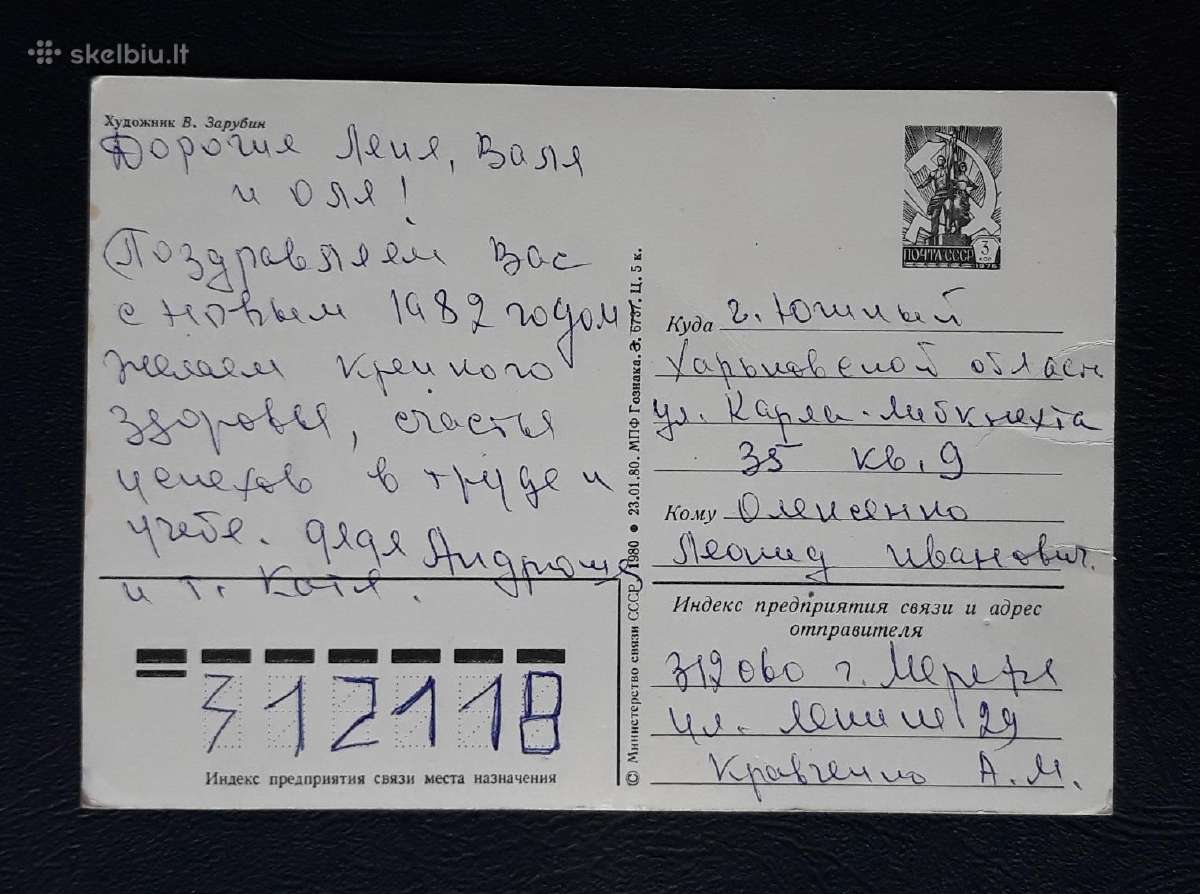 skelbiu.lt
Художник В. Зарубин
Дорогие Леня, Валя
и Оля!
Поздравляем Вас
с новым 1982 годом
желаем крепкого
здоровья, счастья
успехов в труде и
учебе. дядя Андрюша
и т. Катя.
312118
Индекс предприятия связи места назначения
© Министерство связи СССР, 1980 ● 23.01.80. МПФ Гознака. З. 6737. Ц. 5 к.
ПОЧТА СССР
3
КОП
1976
Куда г. Южный
Харьковской област
ул. Карла-Либкнехта
35 кв. 9
Кому Олексенко
Леонид Иванович.
Индекс предприятия связи и адрес
отправителя
312060 г. Мерефа
ул. Ленина 29
Кравченко А. М.